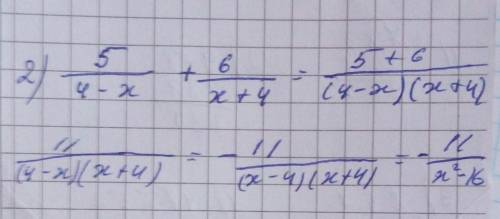 2) 5/(4-x) + 6/(x+4) = (5+6)/((4-x)(x+4))
11/((4-x)(x+4)) = -11/((x-4)(x+4)) = -11/(x²-16)